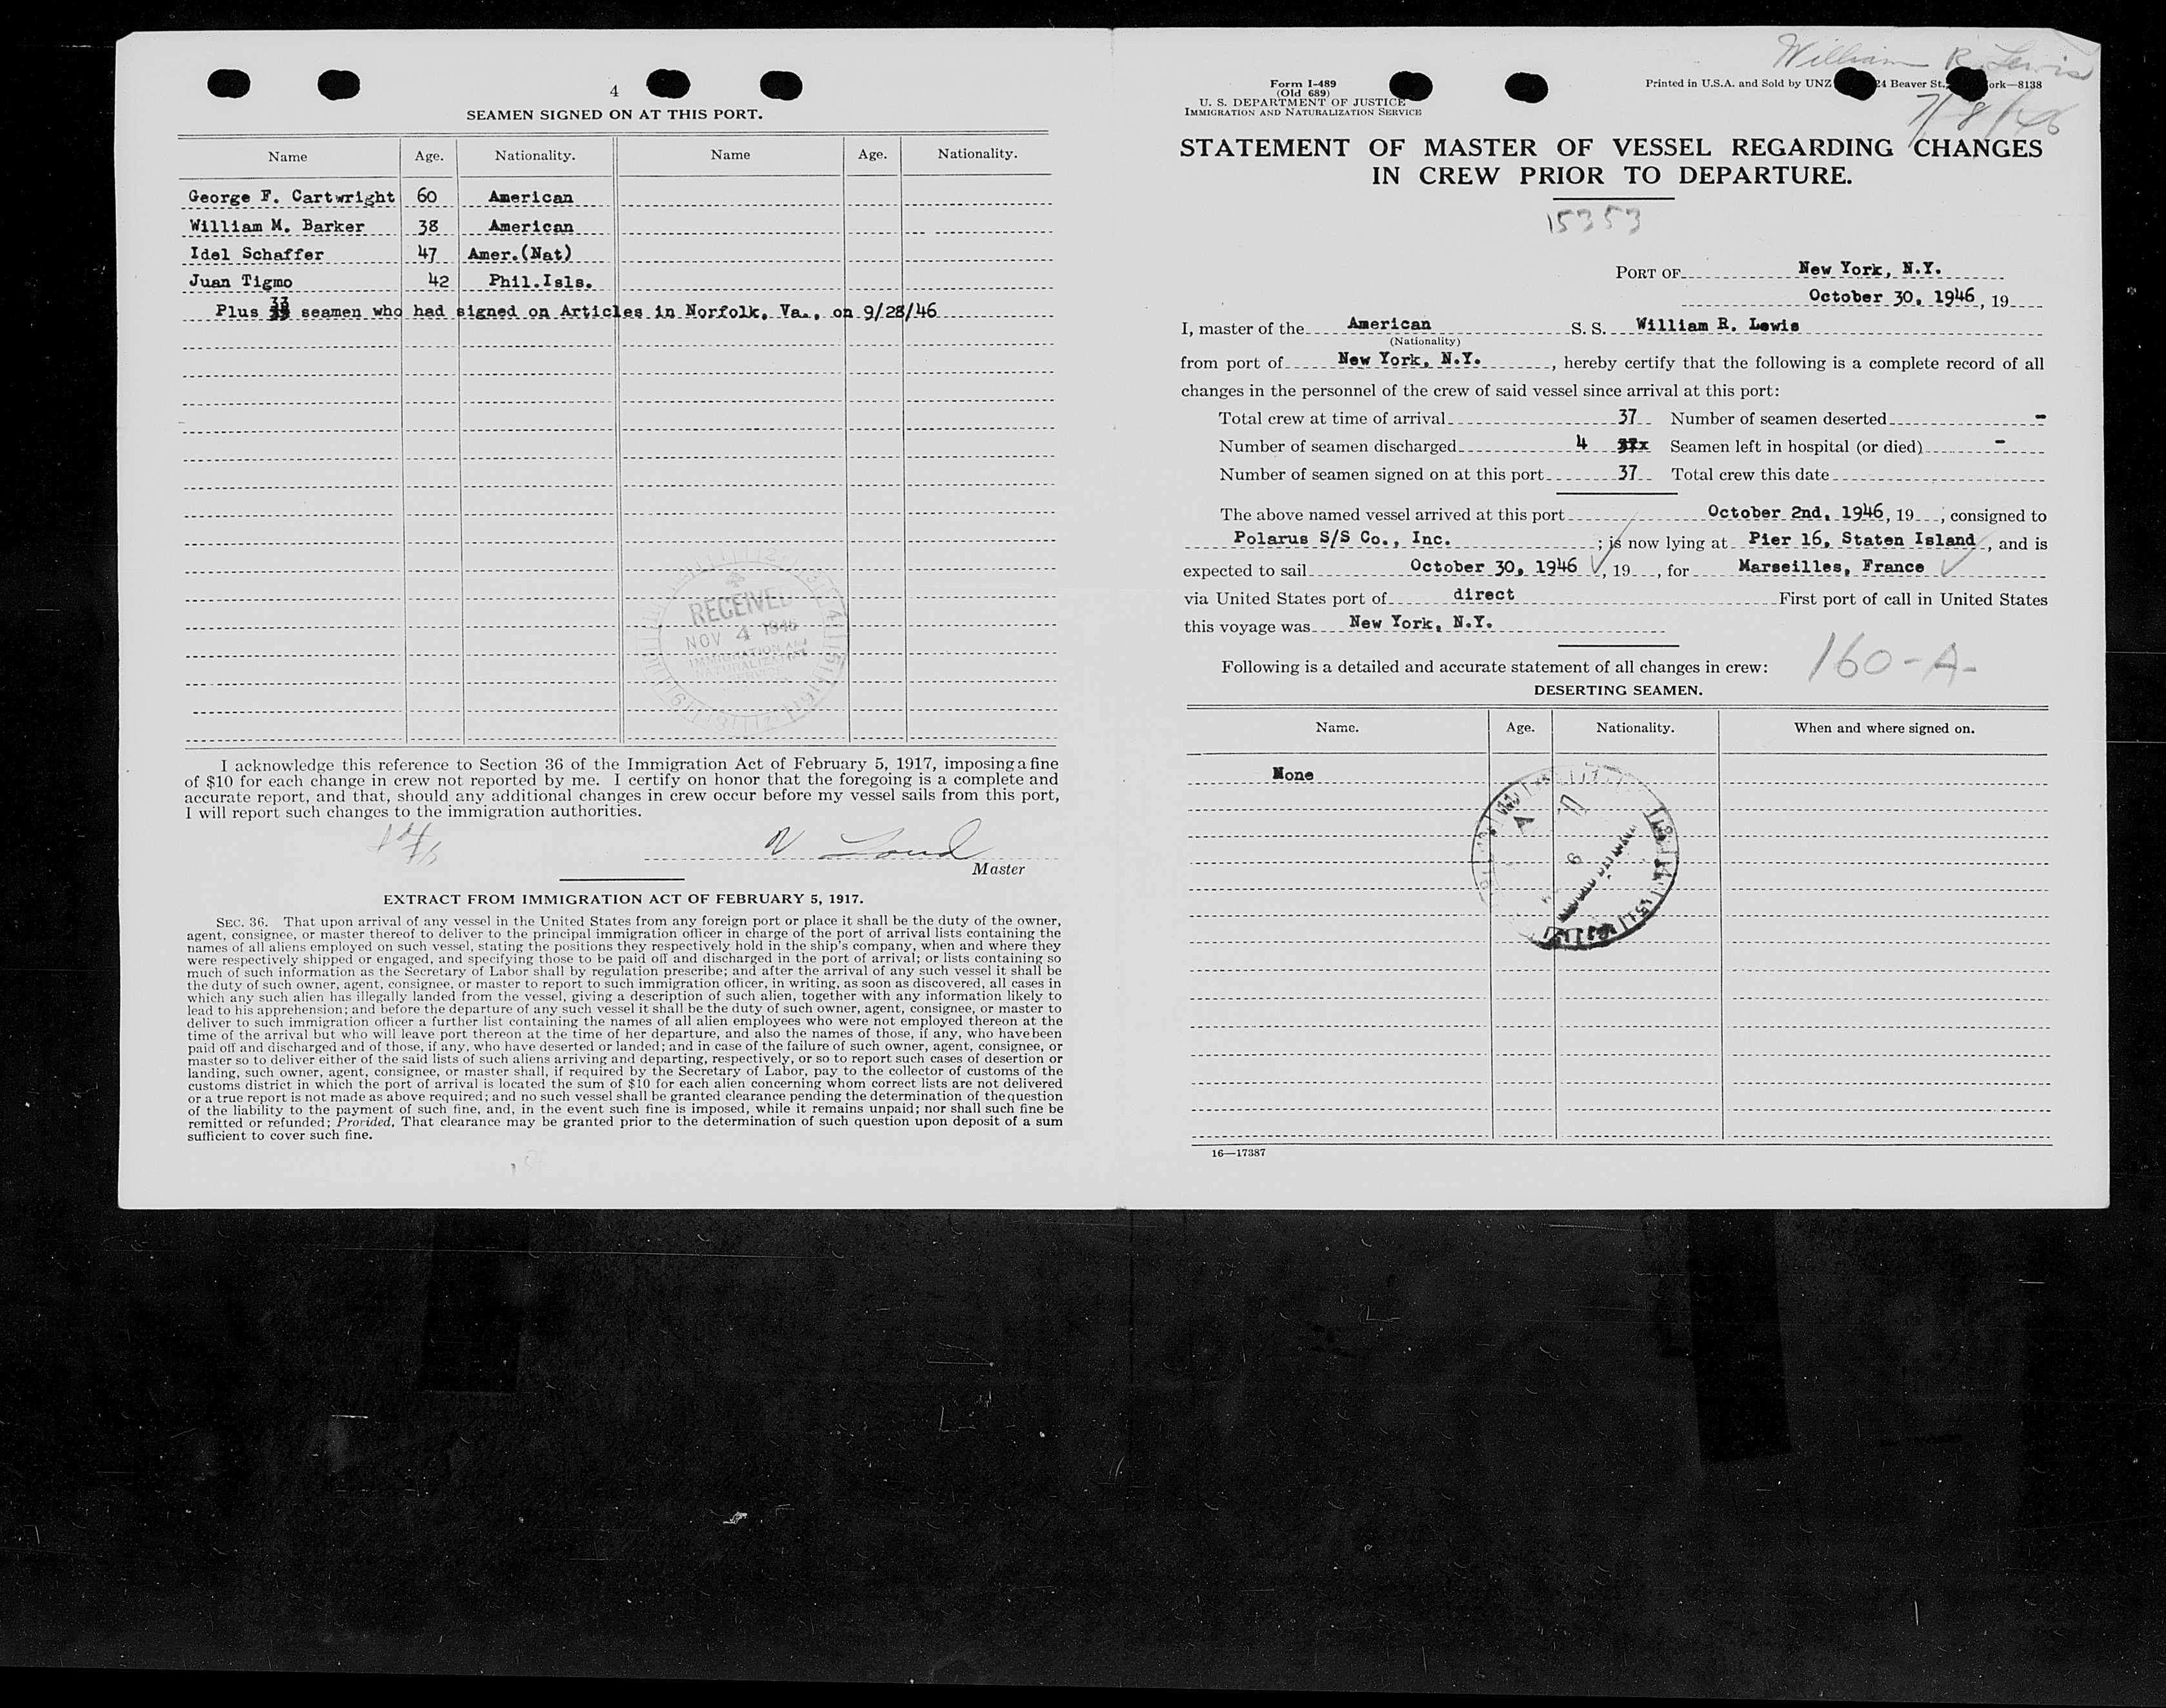 4
SEAMEN SIGNED ON AT THIS PORT.
Name Age. Nationality. Name Age. Nationality.
George F. Cartwright 60 American
William M. Barker 38 American
Idel Schaffer 47 Amer.(Nat)
Juan Tigmo 42 Phil.Isls.
Plus 33 seamen who had signed on Articles in Norfolk, Va., on 9/28/46
RECEIVED
NOV 4 1946
IMMIGRATION AND
NATURALIZATION
SERVICE
I acknowledge this reference to Section 36 of the Immigration Act of February 5, 1917, imposing a fine
of $10 for each change in crew not reported by me. I certify on honor that the foregoing is a complete and
accurate report, and that, should any additional changes in crew occur before my vessel sails from this port,
I will report such changes to the immigration authorities.
Master
EXTRACT FROM IMMIGRATION ACT OF FEBRUARY 5, 1917.
SEC. 36. That upon arrival of any vessel in the United States from any foreign port or place it shall be the duty of the owner,
agent, consignee, or master thereof to deliver to the principal immigration officer in charge of the port of arrival lists containing the
names of all aliens employed on such vessel, stating the positions they respectively hold in the ship's company, when and where they
were respectively shipped or engaged, and specifying those to be paid off and discharged in the port of arrival; or lists containing so
much of such information as the Secretary of Labor shall by regulation prescribe; and after the arrival of any such vessel it shall be
the duty of such owner, agent, consignee, or master to report to such immigration officer, in writing, as soon as discovered, all cases in
which any such alien has illegally landed from the vessel, giving a description of such alien, together with any information likely to
lead to his apprehension; and before the departure of any such vessel it shall be the duty of such owner, agent, consignee, or master to
deliver to such immigration officer a further list containing the names of all alien employees who were not employed thereon at the
time of the arrival but who will leave port thereon at the time of her departure, and also the names of those, if any, who have been
paid off and discharged and of those, if any, who have deserted or landed; and in case of the failure of such owner, agent, consignee, or
master so to deliver either of the said lists of such aliens arriving and departing, respectively, or so to report such cases of desertion or
landing, such owner, agent, consignee, or master shall, if required by the Secretary of Labor, pay to the collector of customs of the
customs district in which the port of arrival is located the sum of $10 for each alien concerning whom correct lists are not delivered
or a true report is not made as above required; and no such vessel shall be granted clearance pending the determination of the question
of the liability to the payment of such fine, and, in the event such fine is imposed, while it remains unpaid; nor shall such fine be
remitted or refunded; Provided, That clearance may be granted prior to the determination of such question upon deposit of a sum
sufficient to cover such fine.
William R. Lewis
Form I-489
(Old 689)
U. S. DEPARTMENT OF JUSTICE
IMMIGRATION AND NATURALIZATION SERVICE
Printed in U.S.A. and Sold by UNZ 24 Beaver St. ork—8138
7/8/46
STATEMENT OF MASTER OF VESSEL REGARDING CHANGES
IN CREW PRIOR TO DEPARTURE.
15353
PORT OF New York, N.Y.
October 30, 1946, 19
I, master of the American S. S. William R. Lewis
(Nationality)
from port of New York, N.Y., hereby certify that the following is a complete record of all
changes in the personnel of the crew of said vessel since arrival at this port:
Total crew at time of arrival 37 Number of seamen deserted -
Number of seamen discharged 4 37x Seamen left in hospital (or died) -
Number of seamen signed on at this port 37 Total crew this date
The above named vessel arrived at this port October 2nd, 1946, 19 , consigned to
Polarus S/S Co., Inc. ; is now lying at Pier 16, Staten Island, and is
expected to sail October 30, 1946, 19 , for Marseilles, France
via United States port of direct First port of call in United States
this voyage was New York, N.Y.
160-A-
Following is a detailed and accurate statement of all changes in crew:
DESERTING SEAMEN.
Name. Age. Nationality. When and where signed on.
None
16—17387